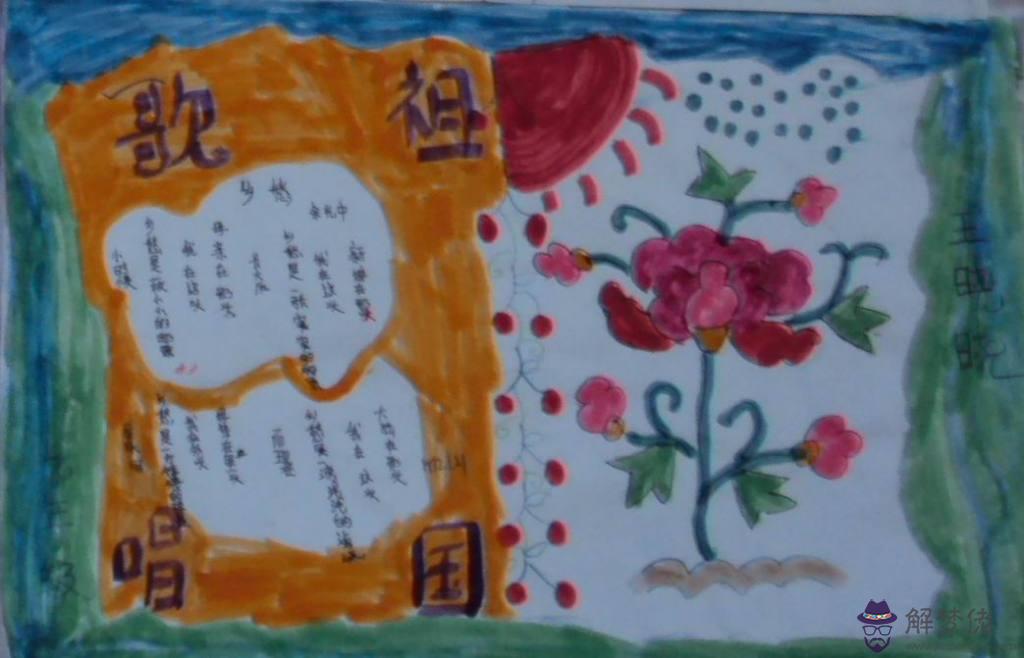 歌唱祖国
乡愁
余光中
小时候
乡愁是一枚小小的邮票
我在这头
母亲在那头
长大后
乡愁是一张窄窄的船票
我在这头
新娘在那头
乡愁是一方矮矮的坟墓
我在外头
母亲在里头
而现在
乡愁是一湾浅浅的海峡
我在这头
大陆在那头
解梦佬